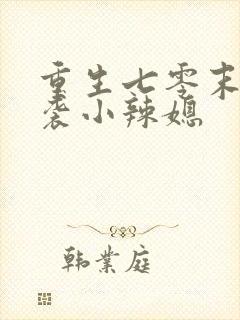 重生七零末
袭小辣媳
韩业庭